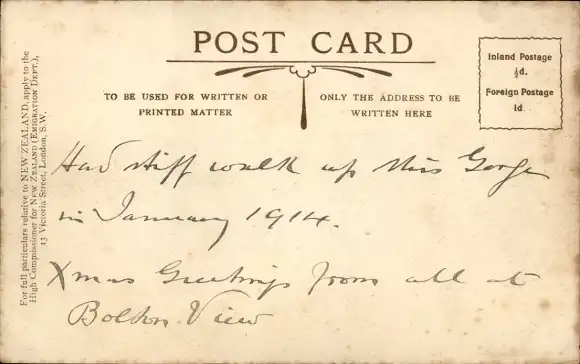 POST CARD
TO BE USED FOR WRITTEN OR
PRINTED MATTER
ONLY THE ADDRESS TO BE
WRITTEN HERE
Inland Postage
½d.
Foreign Postage
1d.
For full particulars relative to NEW ZEALAND, apply to the
High Commissioner for NEW ZEALAND (EMIGRATION DEPT.),
13 Victoria Street, London, S.W.
Had stiff walk up this Gorge
in January 1914.
Xmas Greetings from all at
Bolton View